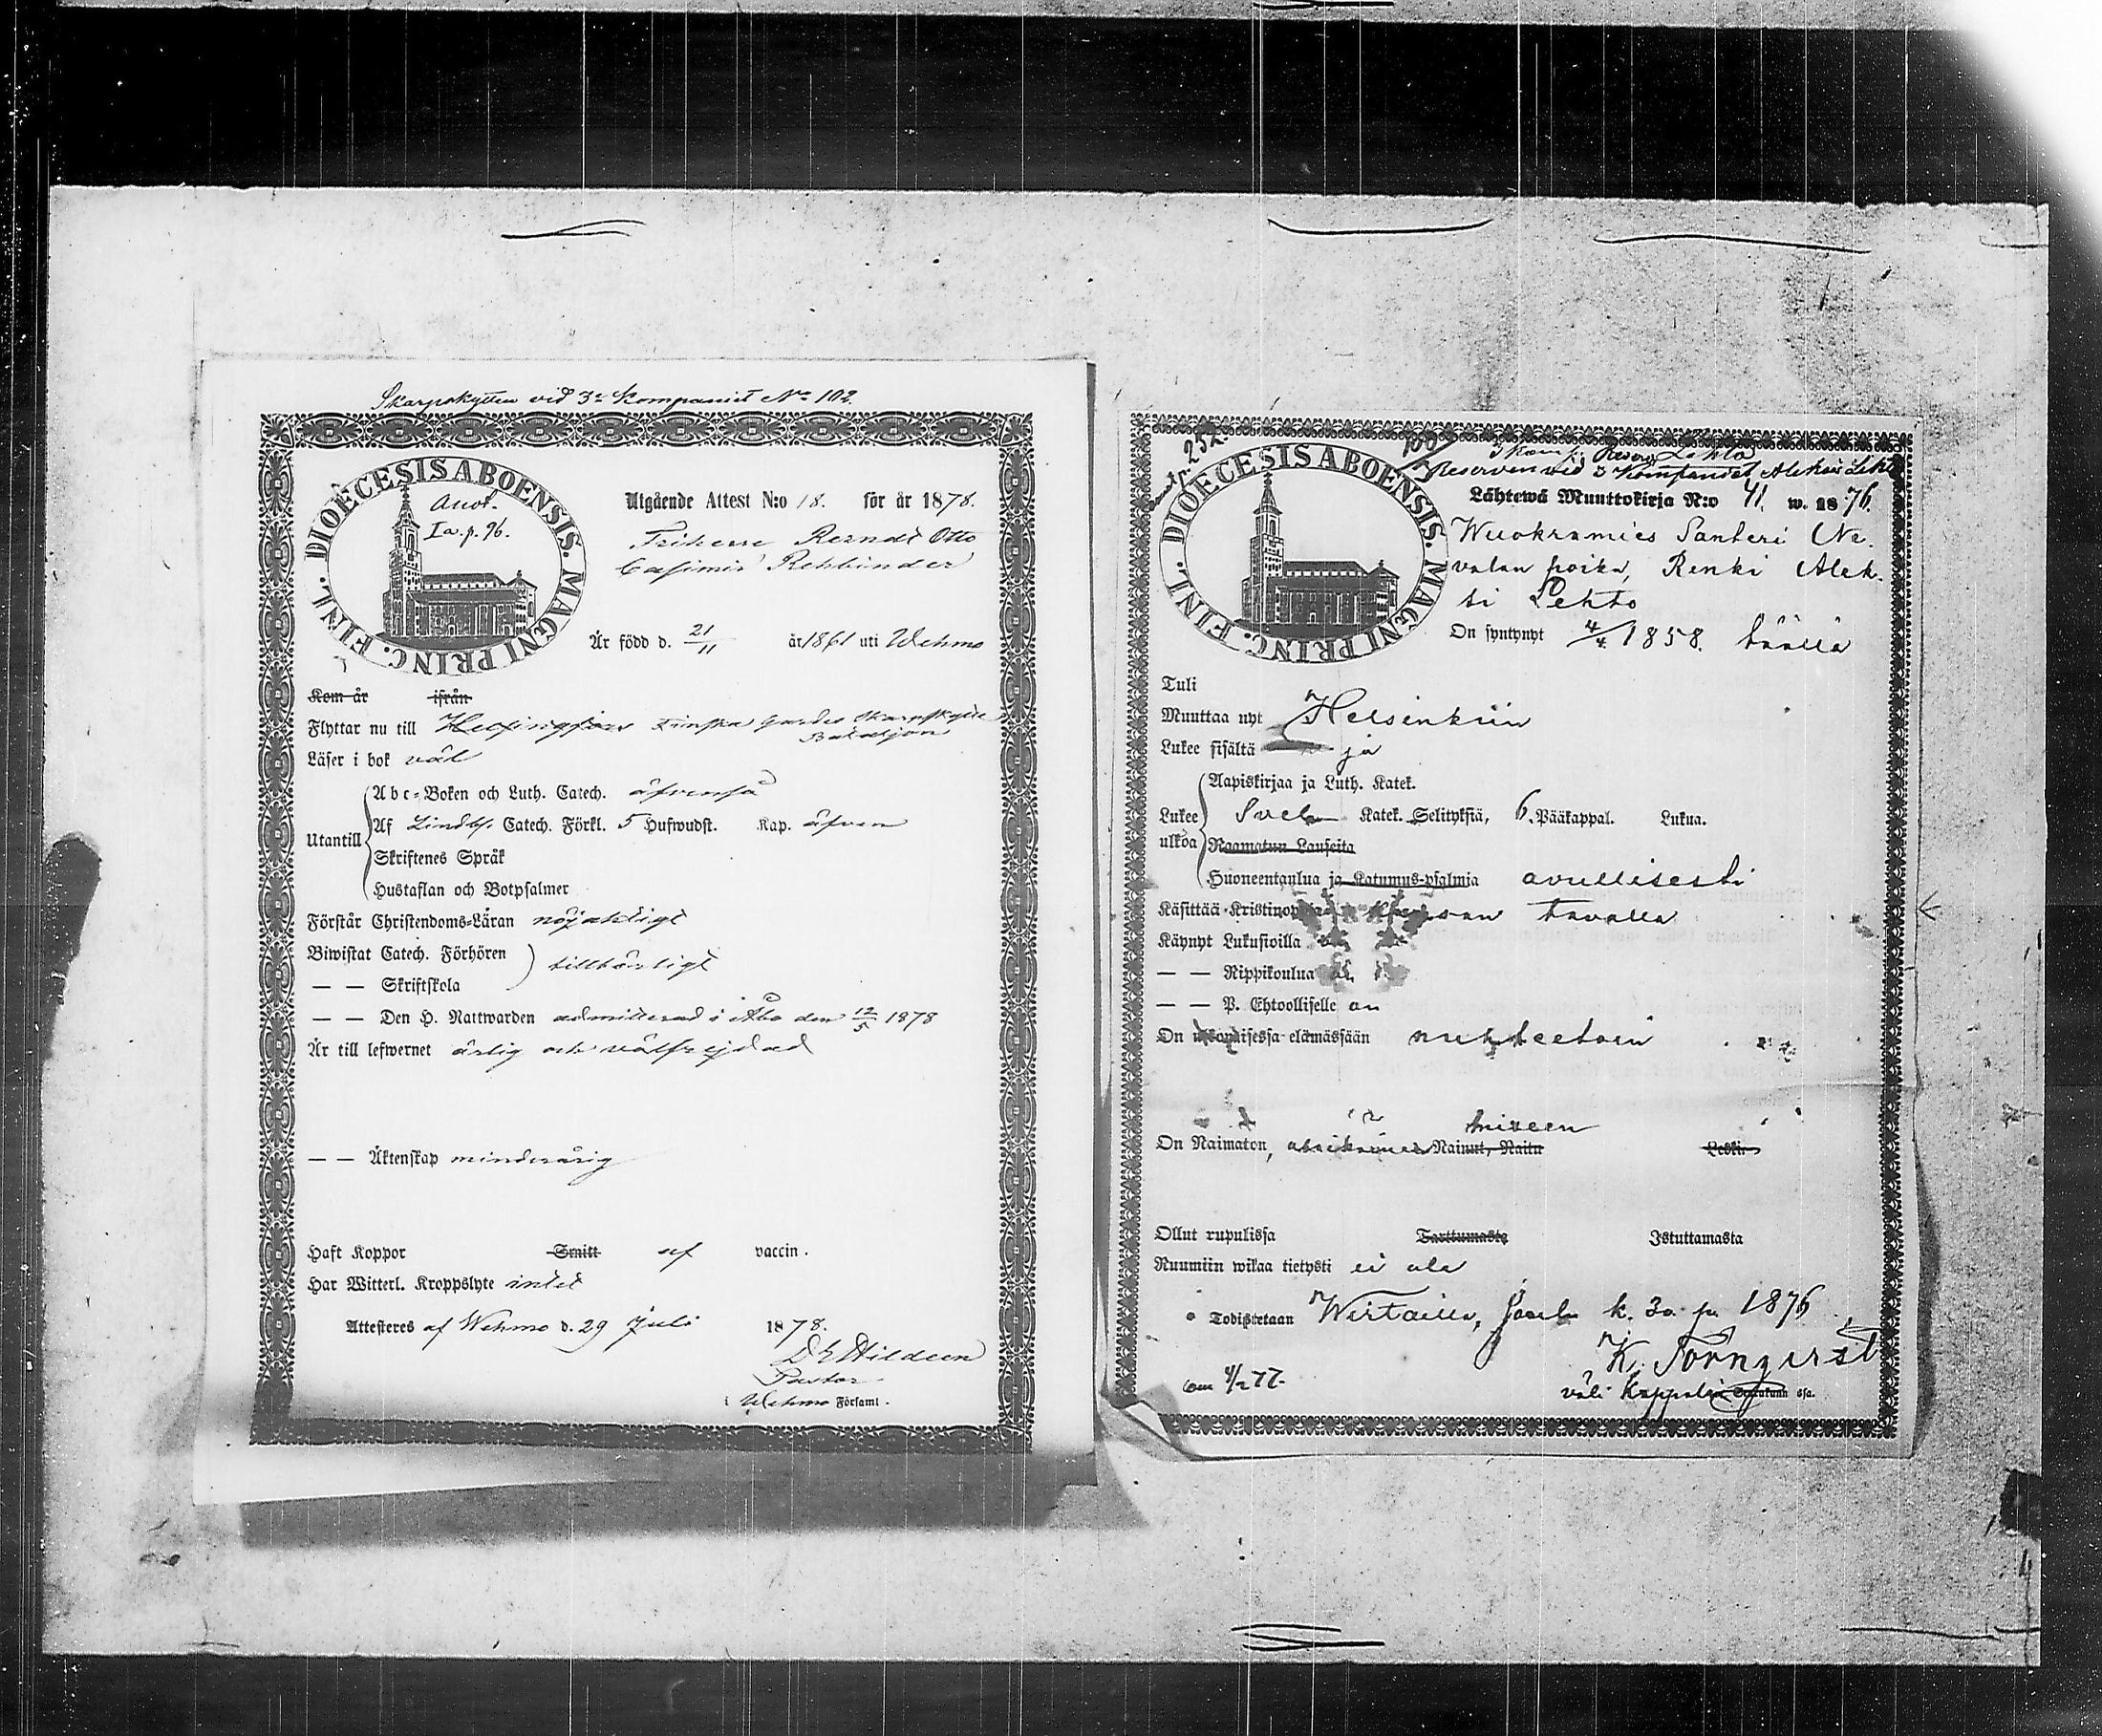 Skarpskytten vid 3e Kompaniet No 102.
DIOECESIS ABOENSIS. MAGNI PRINC. FINL.
Annot.
Ia. p. 96.
Utgående Attest N:o 18. för år 1878.
Friherre Berndt Otto
Casimir Rehbinder
Är född d. 21/11 år 1861 uti Wehmo
Kom år ifrån
Flyttar nu till Helsingfors Finska Gardes Skarpskytte
Bataljon
Läser i bok väl
Abc-Boken och Luth. Catech. äfvenså
Utantill Af Lindbl. Catech. Förkl. 5 Hufwudst. Kap. äfven
Skriftenes Språk
Hustaflan och Botpsalmer
Förstår Christendoms-Läran nöjaktigt
Biwistat Catech. Förhören
tillbörligt
— — Skriftskola
— — Den H. Nattwarden admitterad i Åbo den 12/5 1878
Är till lefwernet ärlig och välfrejdad
— — Äktenskap minderårig
Haft Koppor Smitt af vaccin.
Har Witterl. Kroppslyte intet
Attesteres af Wehmo d. 29 Juli 1878.
Pastor
i Wehmo Församl.
252
Reserven vid 3 Kompaniet Aleksi Lehto
DIOECESIS ABOENSIS. MAGNI PRINC. FINL.
Lähtewä Muuttokirja N:o 41. w. 1876.
Wuokramies Santeri Ne-
valan poika, Renki Alek-
si Lehto
On syntynyt 4/4 1858. täällä
Tuli
Muuttaa nyt Helsinkiin
Lukee sisältä ja
Aapiskirjaa ja Luth. Katek.
Lukee Sveb. Katek. Selityksiä, 6. Pääkappal. Lukua.
ulkoa Raamatun Lauseita
Huoneentaulua ja Katumus-psalmia avullisesti
Käsittää Kristinopin tavalla
Käynyt Lukusioilla
— — Rippikoulua
— — P. Ehtoollisella on
On elämässään nuhteetoin
On Naimaton, Nainut, Naitu Leski
Ollut rupulissa Tarttumasta Istuttamasta
Ruumiin wikaa tietysti ei ole
Todistetaan k. 30 p. 1876
K. Törnqvist
väli Kappalainen Seurakunnassa.